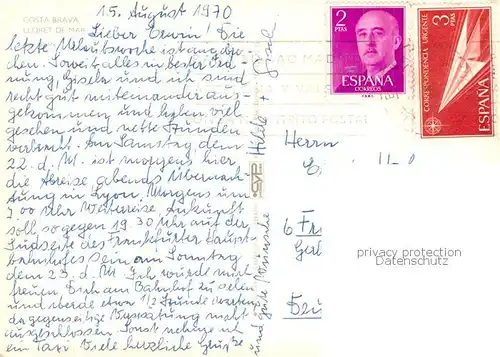 COSTA BRAVA
LLORET DE MAR
15. August 1970
Lieber Erwin! Die
letzte Urlaubswoche ist angebro-
chen. Soweit alles in bester Ord-
nung, Gisela und ich sind
recht gut miteinander aus-
gekommen und haben viel
gesehen und nette Stunden
verbracht. Am Samstag dem
22. d. M. ist morgens hier
die Abreise abends Übernach-
tung in Lyon. Morgens um
7 00 Uhr Weiterreise, Ankunft
soll so gegen 19 30 Uhr auf der
Südseite des Frankfurter Haupt
bahnhofes sein am Sonntag
dem 23. d. M. Ich würde mich
freuen Dich am Bahnhof zu sehen
und werde etwa 1/2 Stunde warten
da gegenseitige Verspätung nicht
ausgeschlossen. Sonst nehme ich
ein Taxi. Viele herzliche Grüße
und gute Wünsche Hilde + Gisel
2
PTAS
ESPAÑA
CORREOS
CORRESPONDENCIA URGENTE
3 PTAS
ESPAÑA
Herrn
6 Fr
privacy protection
AKpool.de